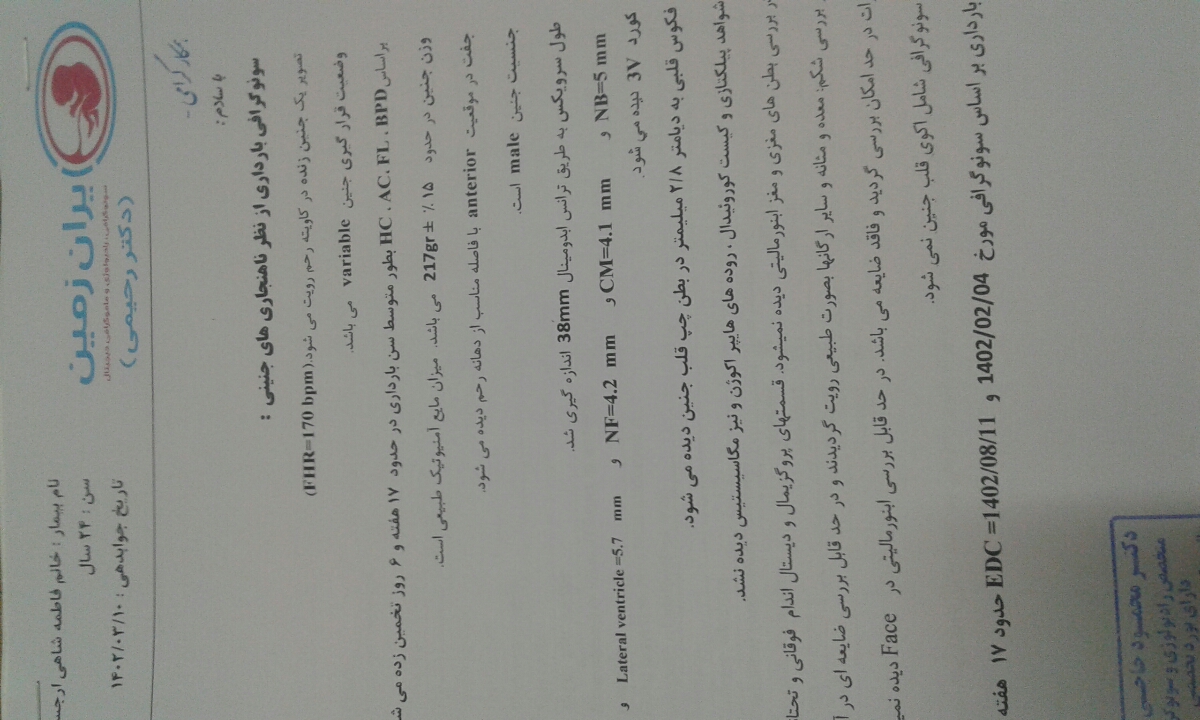 ایران زمین
سونوگرافی، رادیولوژی و ماموگرافی دیجیتال
(دکتر رحیمی)
نام بیمار : خانم فاطمه شاهی ارجس
سن : ۲۴ سال
تاریخ جوابدهی : ۱۴۰۲/۰۳/۱۰
همکار گرامی -
با سلام :
سونوگرافی بارداری از نظر ناهنجاری های جنینی :
تصویر یک جنین زنده در کاویته رحم رویت می شود.(FHR=170 bpm)
وضعیت قرار گیری جنین variable می باشد.
براساس HC . AC. FL . BPD بطور متوسط سن بارداری در حدود ۱۷ هفته و ۶ روز تخمین زده می ش
وزن جنین در حدود ۱۵ ٪ ±217gr می باشد. میزان مایع آمنیوتیک طبیعی است.
جفت در موقعیت anterior با فاصله مناسب از دهانه رحم دیده می شود.
جنسیت جنین male است.
طول سرویکس به طریق ترانس ابدومینال 38mm اندازه گیری شد.
NB=5 mm و CM=4.1 mm و NF=4.2 mm و Lateral ventricle =5.7 mm و
کورد 3V دیده می شود.
فکوس قلبی به دیامتر ۲/۸ میلیمتر در بطن چپ قلب جنین دیده می شود.
شواهد پیلکتازی و کیست کوروئیدال ، روده های هایپر اکوژن و نیز مگاسیستیس دیده نشد.
ر بررسی بطن های مغزی و مغز ابنورمالیتی دیده نمیشود. قسمتهای پروگزیمال و دیستال اندام فوقانی و تحتا
بررسی شکم: معده و مثانه و سایر ارگانها بصورت طبیعی رویت گردیدند و در حد قابل بررسی ضایعه ای در آ
رات در حد امکان بررسی گردید و فاقد ضایعه می باشد. در حد قابل بررسی ابنورمالیتی در Face دیده نمی
سونوگرافی شامل اکوی قلب جنین نمی شود.
بارداری بر اساس سونوگرافی مورخ 1402/02/04 و EDC =1402/08/11 حدود ۱۷ هفته
دکتر محمود حاجی
متخصص رادیولوژی و سونوگر
دارای بورد تخصصی